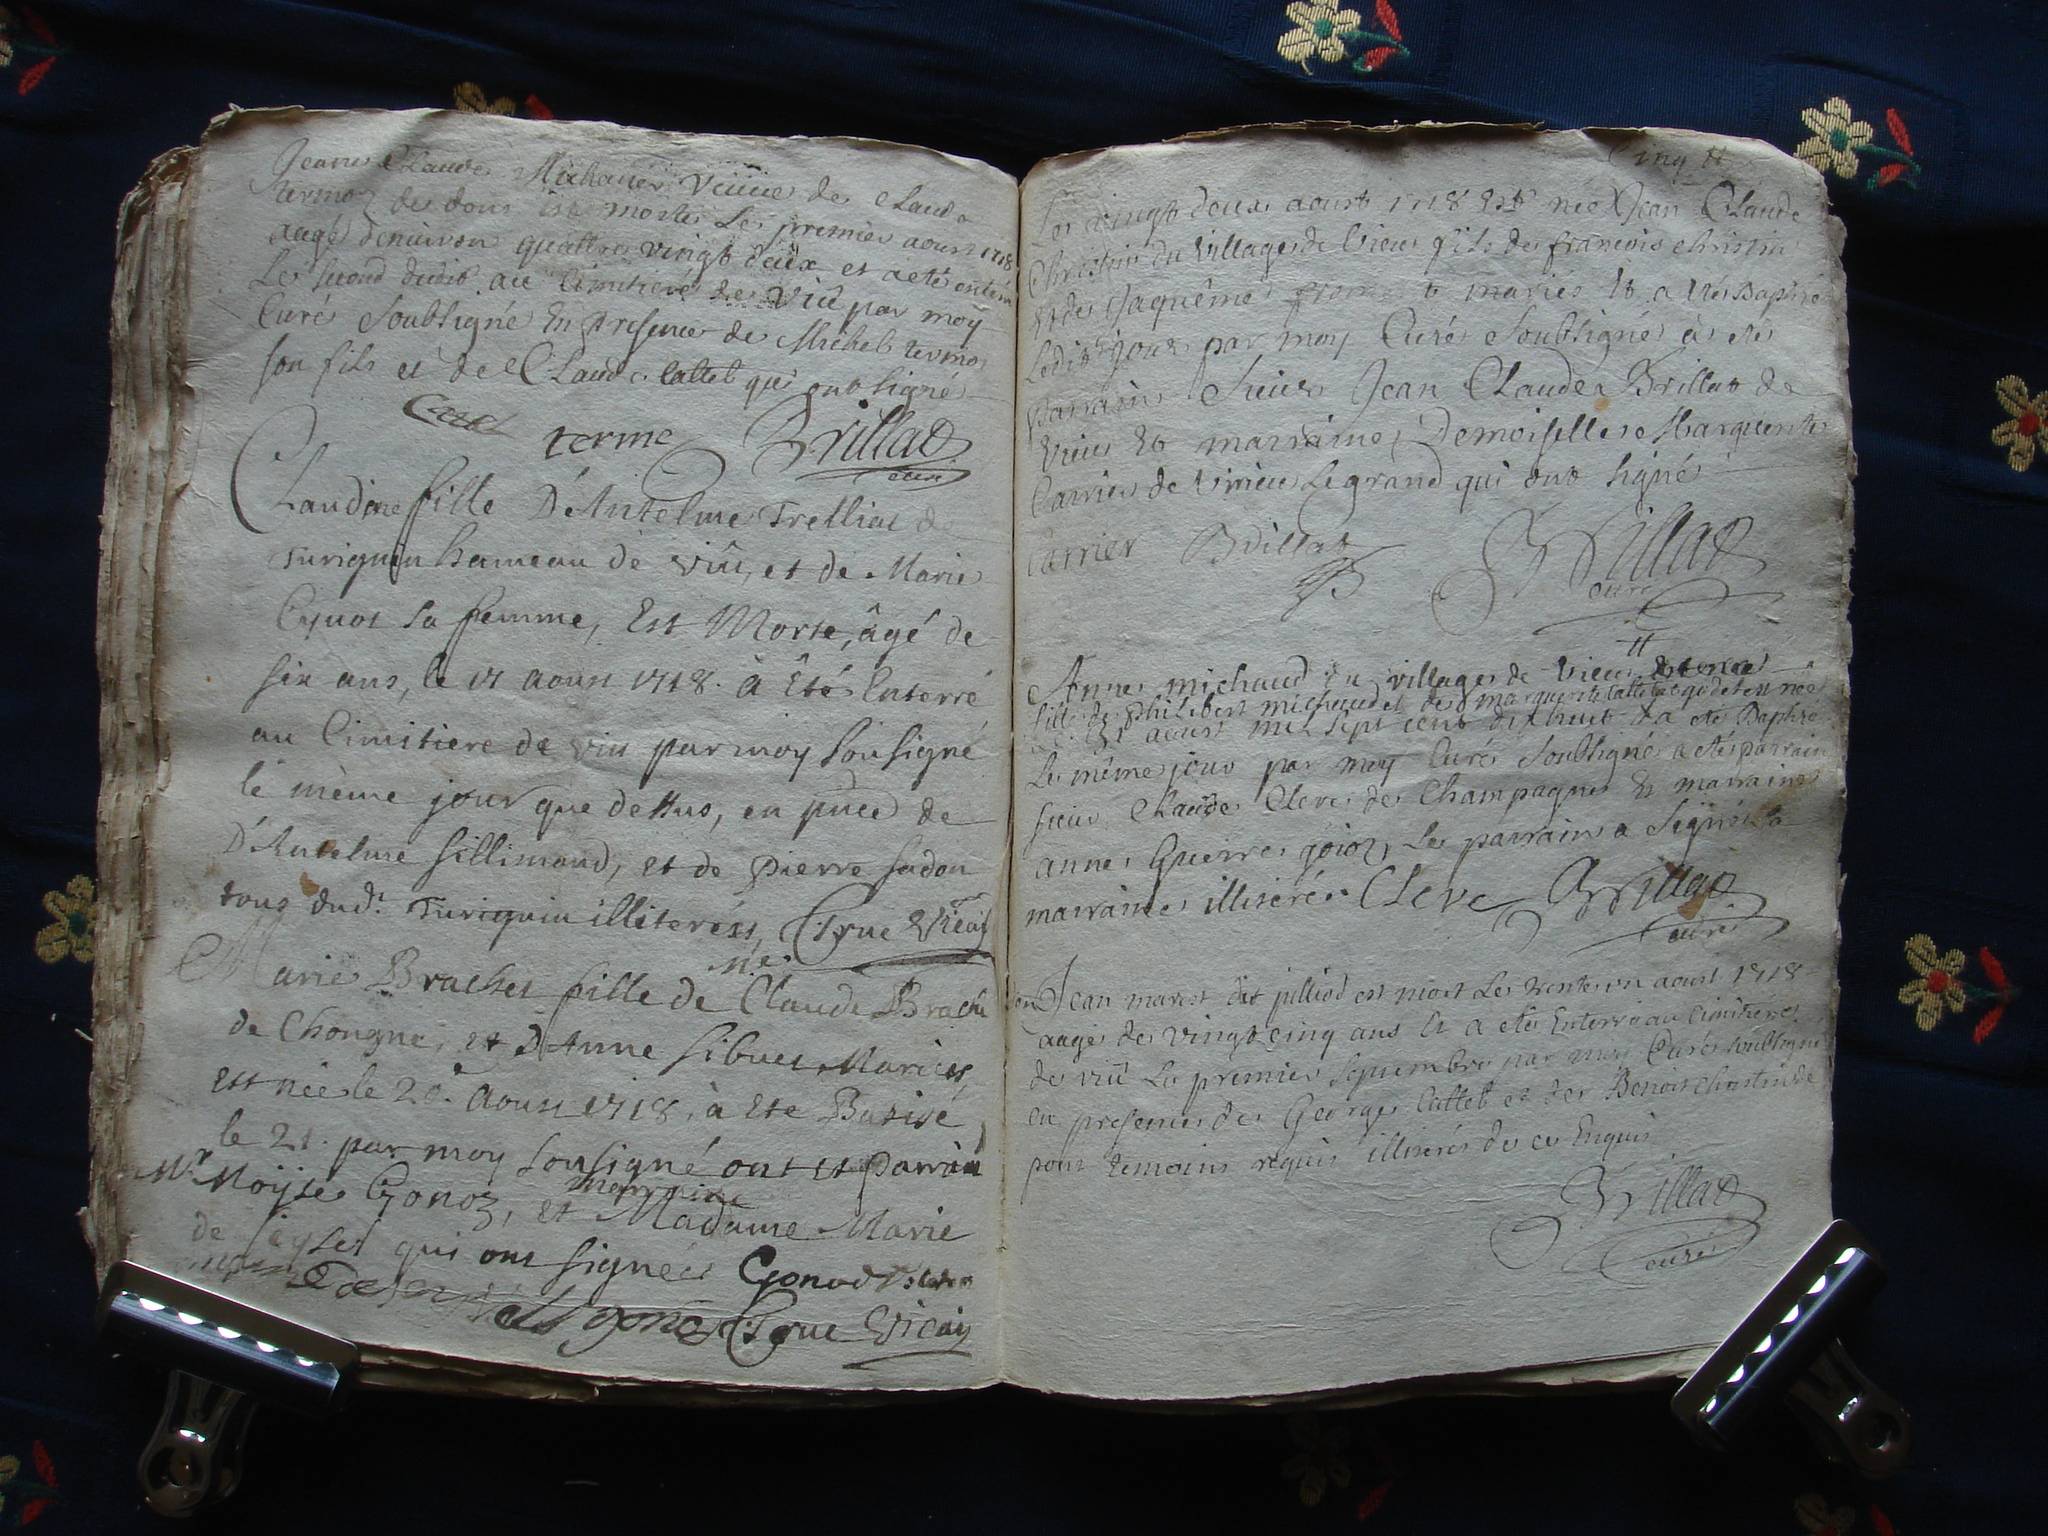 Jeane Claude Michauer Veuue de Claude
termoz de don est morte Le premier aoust 1718
aagé denuiron quattre vingt deux et a eté enterré
Le second dudit au Cimitiere de Viû par moy
Curé Soubsigné En presence de Michel termo
son fils et de Claude Cattet qui ont signé
terme Brillat
curé
Claudine fille D'Antelme Trelliat de
Turignin hameau de viû, et de Marie
Gynot sa femme, Est Morte, âgé de
six ans, le 17 Aoust 1718. à Eté Enterré
au Cimitiere de viu par moy Sousigné
le même jour que dessus, en pnce de
D'Antelme Sillimand, et de Pierre Sadon
tous dud.t Turignin illiterés, True Vicaí
Marie Brachet fille de Claude Brache
de Chongne, et D'Anne Sibuet Mariés,
est née le 20.e Aoust 1718, à Eté Batisé
le 21. par moy Sousigné ont et Parrain
Mr. Moÿse Gonoz, et Marraine Madame Marie
de Seyssel qui ont signé Gonod
True Vicaiy
Cinq tt
Le vingt deux aoust 1718 Est né Jean Claude
Christin du Village de Vieu fils de francois christin
et de Jaquéme mariés Et a eté Baptié
Ledit jour par moy Curé Soubsigné à eté
parrain Sieur Jean Claude Brillat de
Vieu Et marraine, Demoiselle Marguerite
Carrier de Virieu Le grand qui ont signé
Carrier Brillat Brillat
curé
tt
Anne michaud du village de Vieu
fille de Philibert michaud et de marguerite Cattet est née
Le 31 aoust mil sept cent dix huit Et a eté Baptié
Le méme jour par moy Curé Soubsigné a eté parrain
sieur Claude Cleve de Champagne Et marraine
anne Guerre goioz, Le parrain a signé La
marraine illiseré. Cleve Brillat
curé
Jean marest dit jilliod est mort Le trente un aoust 1718
aagé de vingt cinq ans Et a eté Enterré au Cimitiere
de viû Le premier septembre par moy Curé soubsigné
en presence de George Cattet et de Benoit christin de
pour temoins requis illiserés de ce Enquis
Brillat
curé